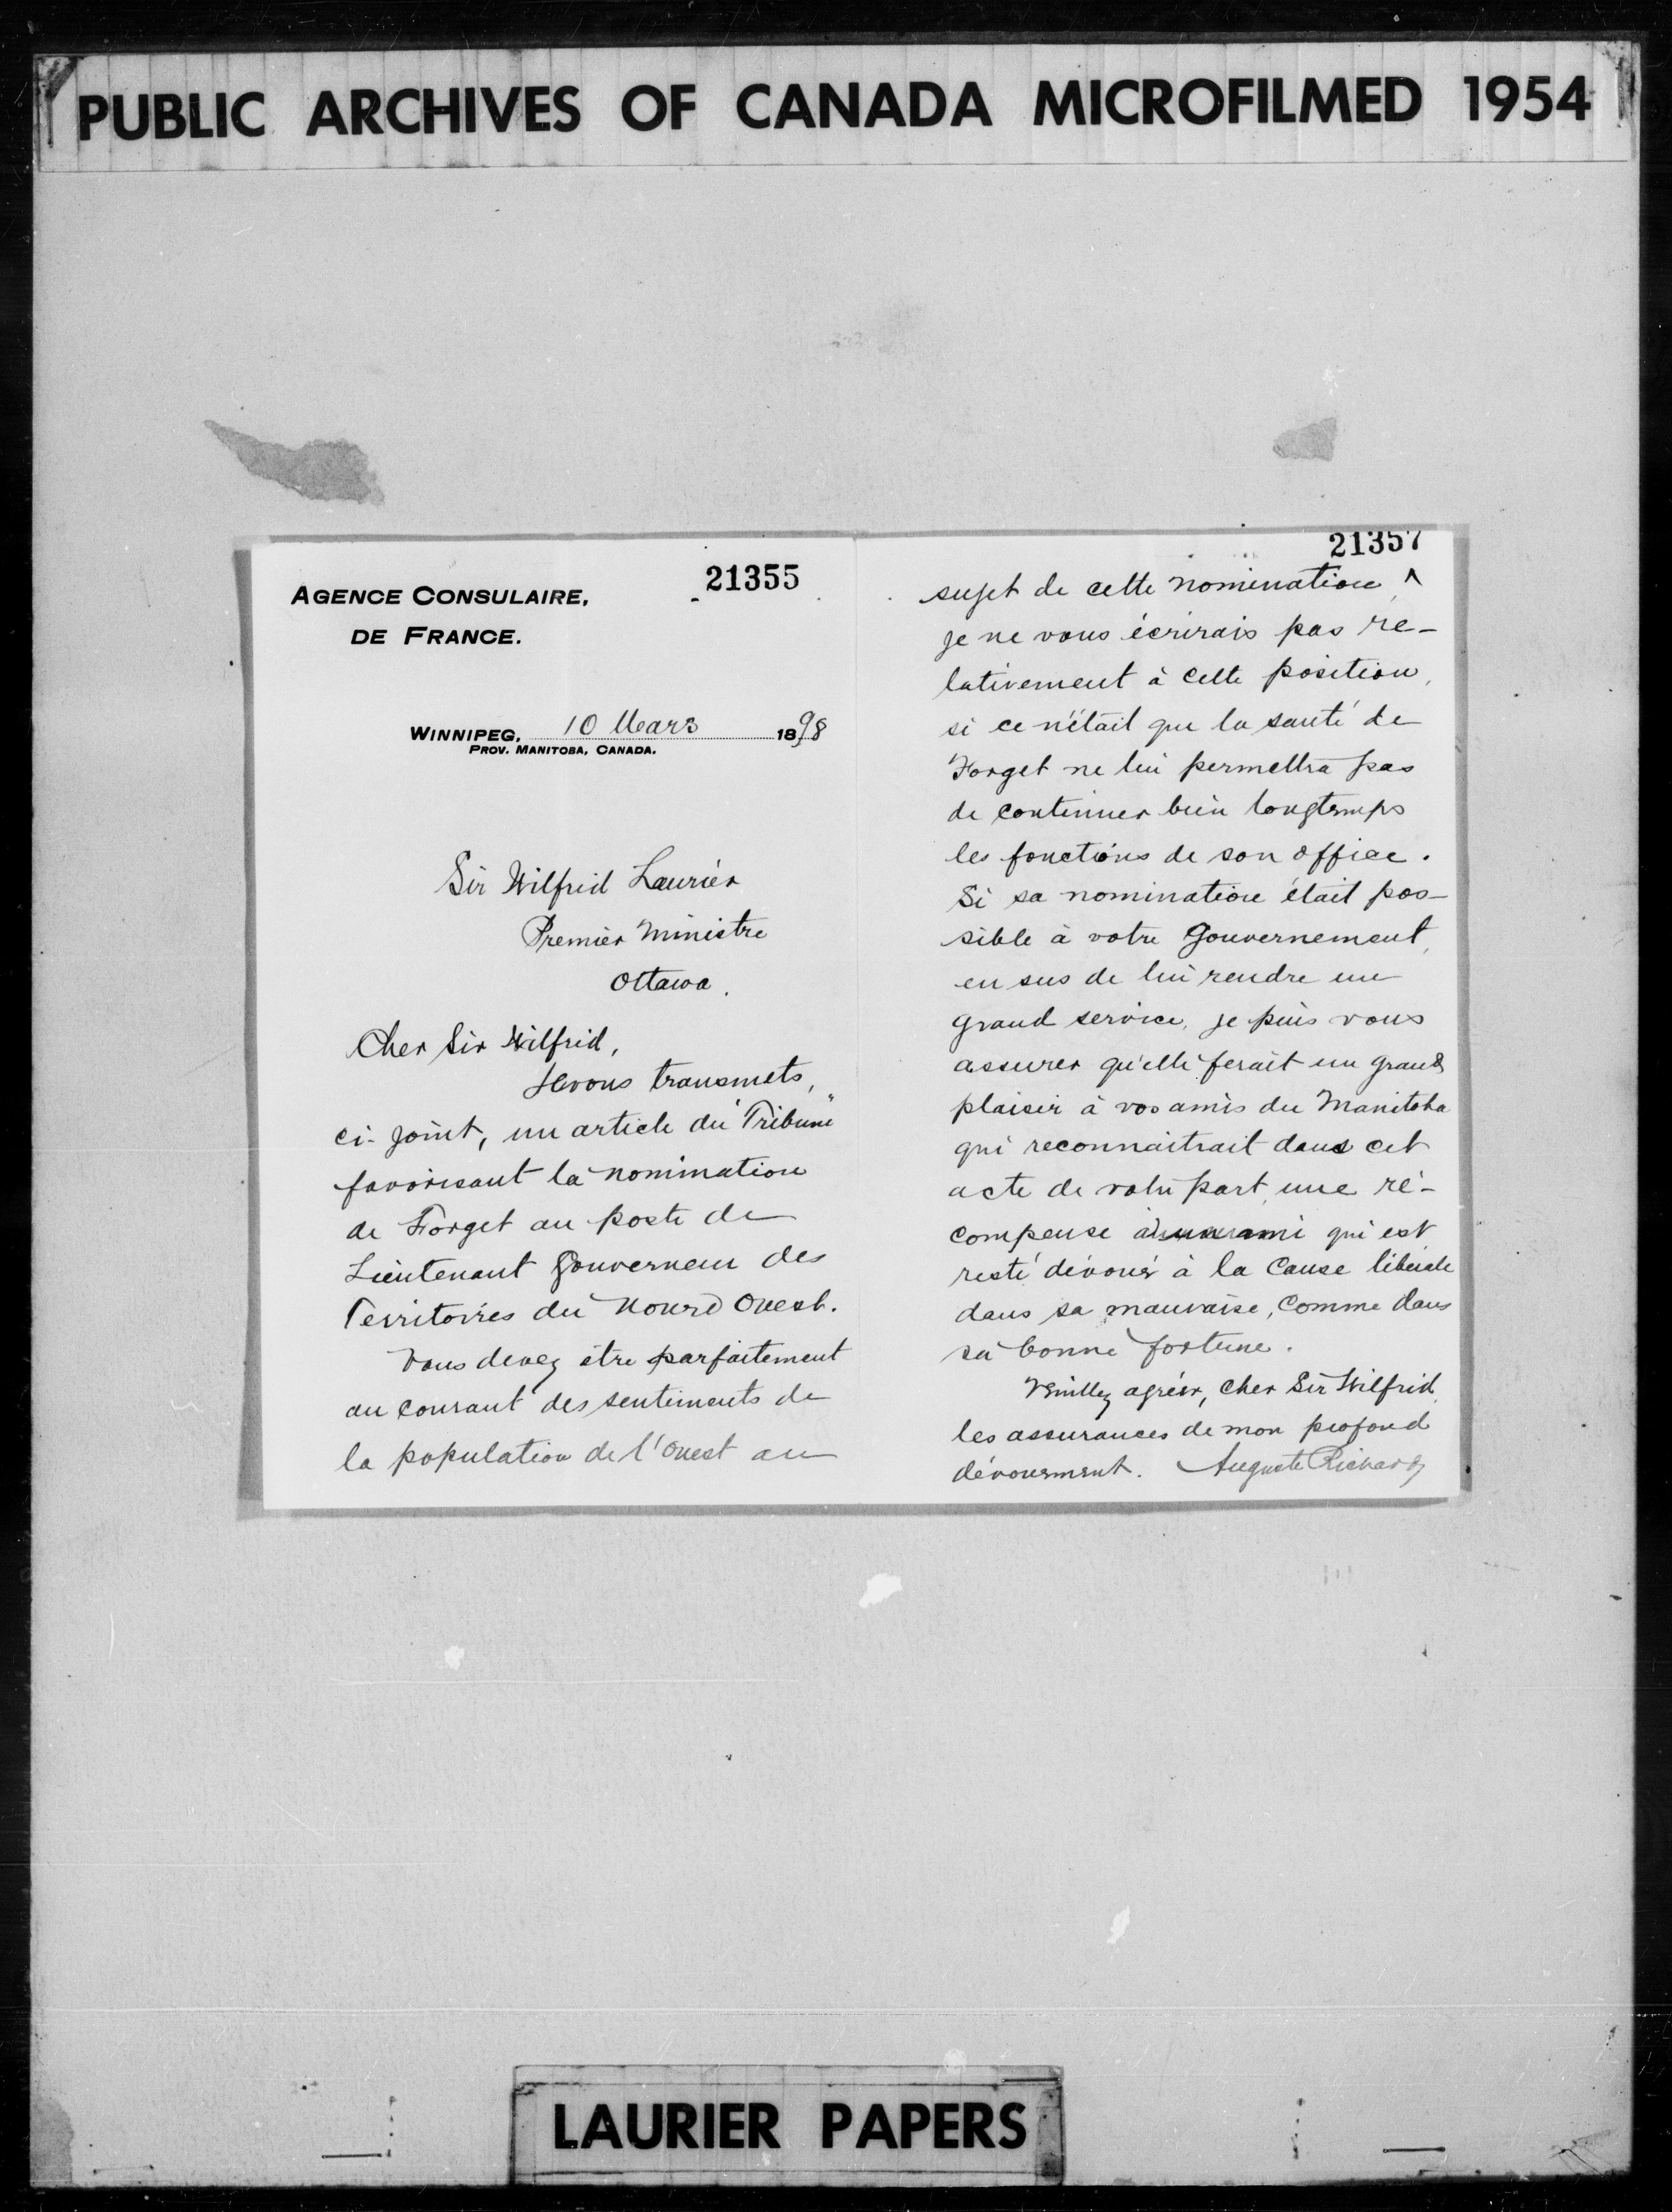 PUBLIC ARCHIVES OF CANADA MICROFILMED 1954
21355
AGENCE CONSULAIRE,
DE FRANCE.
WINNIPEG, 10 Mars 1898
PROV. MANITOBA, CANADA.
Sir Wilfrid Laurier
Premier Ministre
Ottawa.
Cher Sir Wilfrid,
Je vous transmets,
ci-joint, un article du "Tribune"
favorisant la nomination
de Forget au poste de
Lieutenant Gouverneur des
Territoires du Nourd Ouest.
Vous devez être parfaitement
au courant des sentiments de
la population de l'Ouest au
21357
sujet de cette nomination, ^
je ne vous écrirais pas re-
lativement à cette position,
si ce n'était que la santé de
Forget ne lui permettra pas
de continuer bien longtemps
les fonctions de son office.
Si sa nomination était pos-
sible à votre Gouvernement,
en sus de lui rendre un
grand service, je puis vous
assurer qu'elle ferait un grand
plaisir à vos amis du Manitoba
qui reconnaitrait dans cet
acte de votre part, une ré-
compense à un ami qui est
resté dévoué à la cause libérale
dans sa mauvaise, comme dans
sa bonne fortune.
Veuillez agréer, cher Sir Wilfrid,
les assurances de mon profond
dévouement. Auguste Richard
LAURIER PAPERS